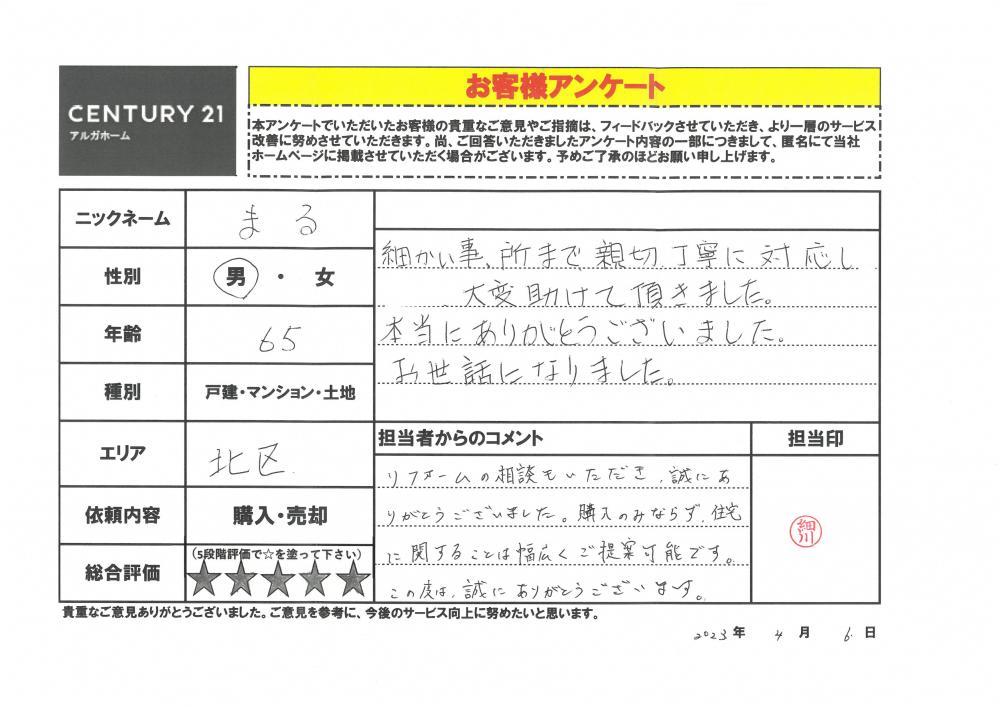 CENTURY 21
アルガホーム
お客様アンケート
本アンケートでいただいたお客様の貴重なご意見やご指摘は、フィードバックさせていただき、より一層のサービス
改善に努めさせていただきます。尚、ご回答いただきましたアンケート内容の一部につきまして、匿名にて当社
ホームページに掲載させていただく場合がございます。予めご了承のほどお願い申し上げます。
ニックネーム
まる
性別
男・女
年齢
65
種別
戸建・マンション・土地
エリア
北区
依頼内容
購入・売却
総合評価
(5段階評価で☆を塗って下さい)
★★★★★
細かい事、所まで、親切、丁寧に対応し
大変助けて頂きました。
本当にありがとうございました。
お世話になりました。
担当者からのコメント
担当印
リフォームの相談もいただき、誠にあ
りがとうございました。購入のみならず、住宅
に関することは幅広くご提案可能です。
この度は、誠にありがとうございます。
細川
貴重なご意見ありがとうございました。ご意見を参考に、今後のサービス向上に努めたいと思います。
2023年 4月 6日